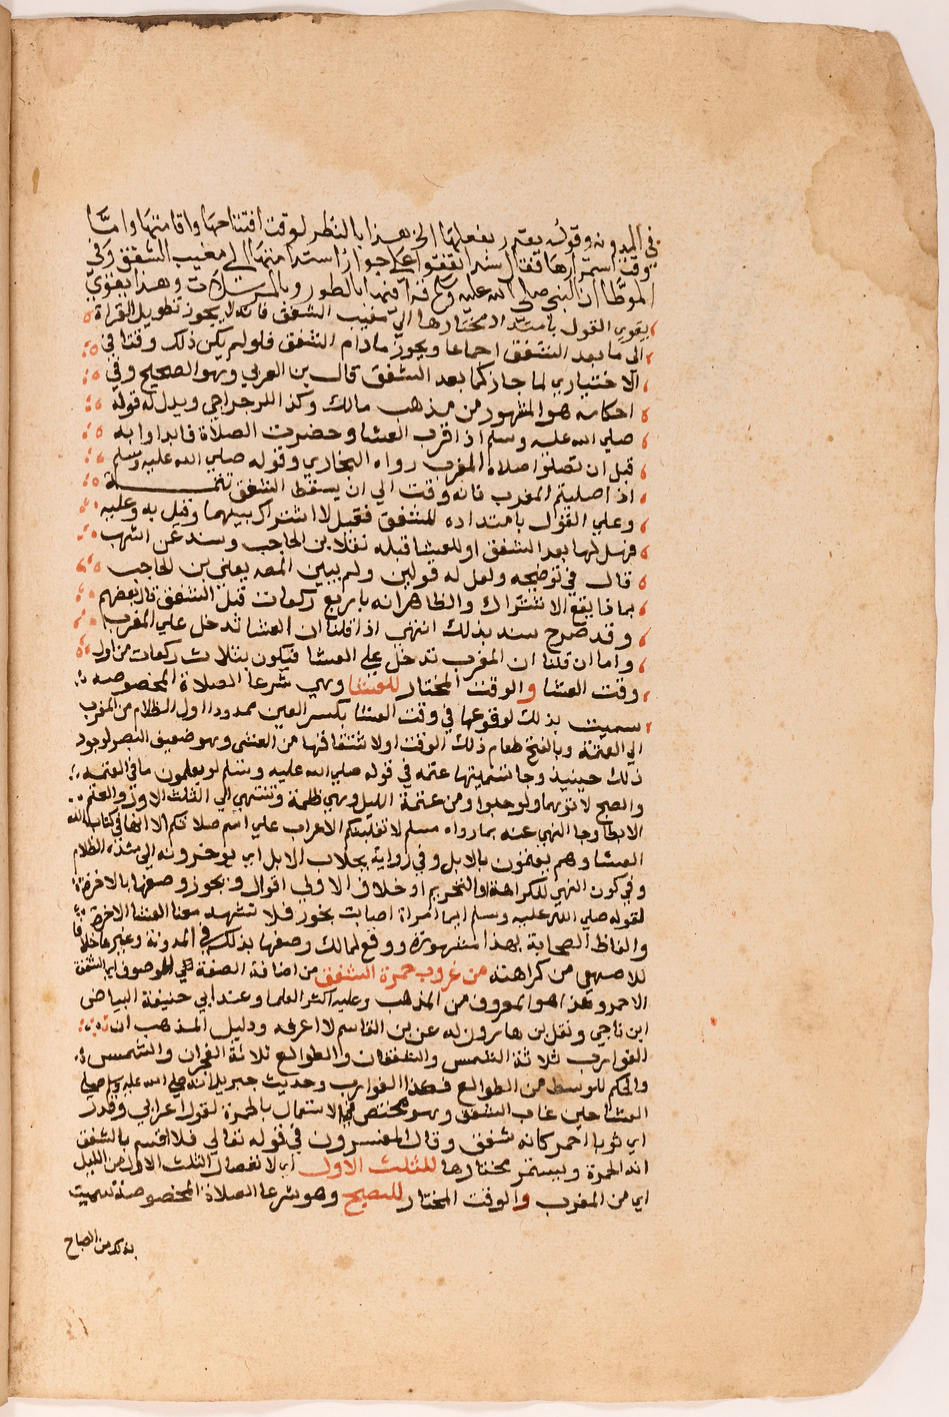 في المدونة وقوله يقدر بفعلها الخ هذا بالنظر لوقت افتتاحها واقامتها واما
وقت استمرارها فقال سند اتفقوا على جواز استدامتها الى مغيب الشفق وفي
الموطا ان النبي صلى الله عليه وسلم قرا فيها بالطور وبالمرسلات وهذا يقوي
يقوي القول بامتداد مختارها الي مغيب الشفق فانه لا يجوز تطويل القراة
الى ما بعد الشفق اجماعا ويجوز مادام الشفق فلو لم يكن ذلك وقتا في
الاختياري لما جاز كما بعد الشفق قال بن العربي وهو الصحيح وفي
احكامه هو المشهور من مذهب مالك وكذا للرجراجي ويدل له قوله
صلي الله عليه وسلم اذا قرب العشا وحضرت الصلاة فابداوا به
قبل ان تصلوا صلاة المغرب رواه البخاري وقوله صلي الله عليه وسلم
اذا صليتم المغرب فانه وقت الي ان يسقط الشفق تتمة
وعلي القول بامتداده للشفق فقيل لا اشتراك بينهما وقيل به وعليه
فهل لها بعد الشفق او للعشا قبله نقلا بن الحاجب وسند عن اشهب
قال في توضيحه ولعل له قولين ولم يبين المص يعني بن الحاجب
بماذا يقع الاشتراك والظاهر انه باربع ركعات قبل الشفق قاله بعضهم
وقد صرح سند بذلك انتهى اذا قلنا ان العشا تدخل علي المغرب
واما ان قلنا ان المغرب تدخل على العشا فيكون بثلاث ركعات من اول
وقت العشا والوقت المختار للعشا وهي شرعا الصلاة المخصوصه
سميت بذلك لوقوعها في وقت العشا بكسر العين ممدودا اول الظلام من المغرب
الي العتمة وبالفتح طعام ذلك الوقت او لاشتقاقها من العشى وهو ضعيف البصر لوجود
ذلك حينيذ وجا تسميتها عتمه في قوله صلي الله عليه وسلم لو يعلمون ما في العتمه
والصبح لاتوهما ولو حبوا ومن عتمة الليل وهي ظلمة وتنتهي الي الثلث الاول والعتم
الابطا وجا النهي عنه بما رواه مسلم لا تغلبنكم الاعراب علي اسم صلاتكم الا انها في كتاب الله
العشا وهم يعتمون بالابل وفي رواية بحلاب الابل اي يوخرونه الى شدة الظلام
وفي كون النهي للكراهة او التحريم او خلاف الاولي اقوال ويجوز وصفها بالاخرة
لقوله صلي الله عليه وسلم ايما امراة اصابت بخور فلا تشهد معنا العشا الاخرة
والفاظ الصحابة بهذا مشهورة ووقع لمالك وصفها بذلك في المدونة وغيرها خلافا
للاصمعي من كراهته من غروب حمرة الشفق من اضافة الصفة الى الموصوف اي الشفق
الاحمر وهذا هو المعروف من المذهب وعليه اكثر العلما وعند ابي حنيفة البياض
ابن ناجي ونقل بن هارون له عن بن القاسم لا اعرفه ودليل المذهب ان
الغوارب ثلاثة الشمس والشفقان والطوالع ثلاثة الفجران والشمس
والحكم للوسط من الطوالع فكذا الغوارب وحديث جبريل انه صلي الله عليه وسلم صلي
العشا حين غاب الشفق وهو مختص في الاستعمال بالحمرة لقول اعرابي وقد را
اي ثوبا احمر كانه شفق وقال المفسرون في قوله تعالي فلا اقسم بالشفق
انه الحمرة ويستمر مختارها للثلث الاول اي لانفصال الثلث الاول من الليل
اي من المغرب والوقت المختار للصبح وهو شرعا الصلاة المخصوصة سميت
بذلك من الصباح